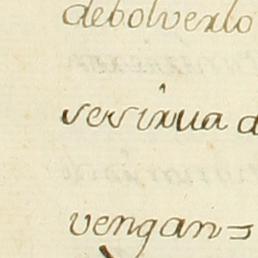 debolverlo
se sirua a
vengan=s